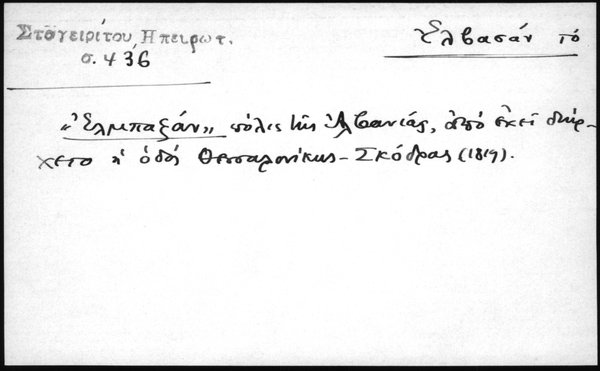 Στογειρίτου, Ηπειρωτ.
σ. 436
Ἐλβασάν τό
«Ἐλμπαξάν» πόλις τῆς Ἀλβανίας, ἀπό ἐκεῖ διήρ-
χετο ἡ ὁδός Θεσσαλονίκης - Σκόδρας (1819).